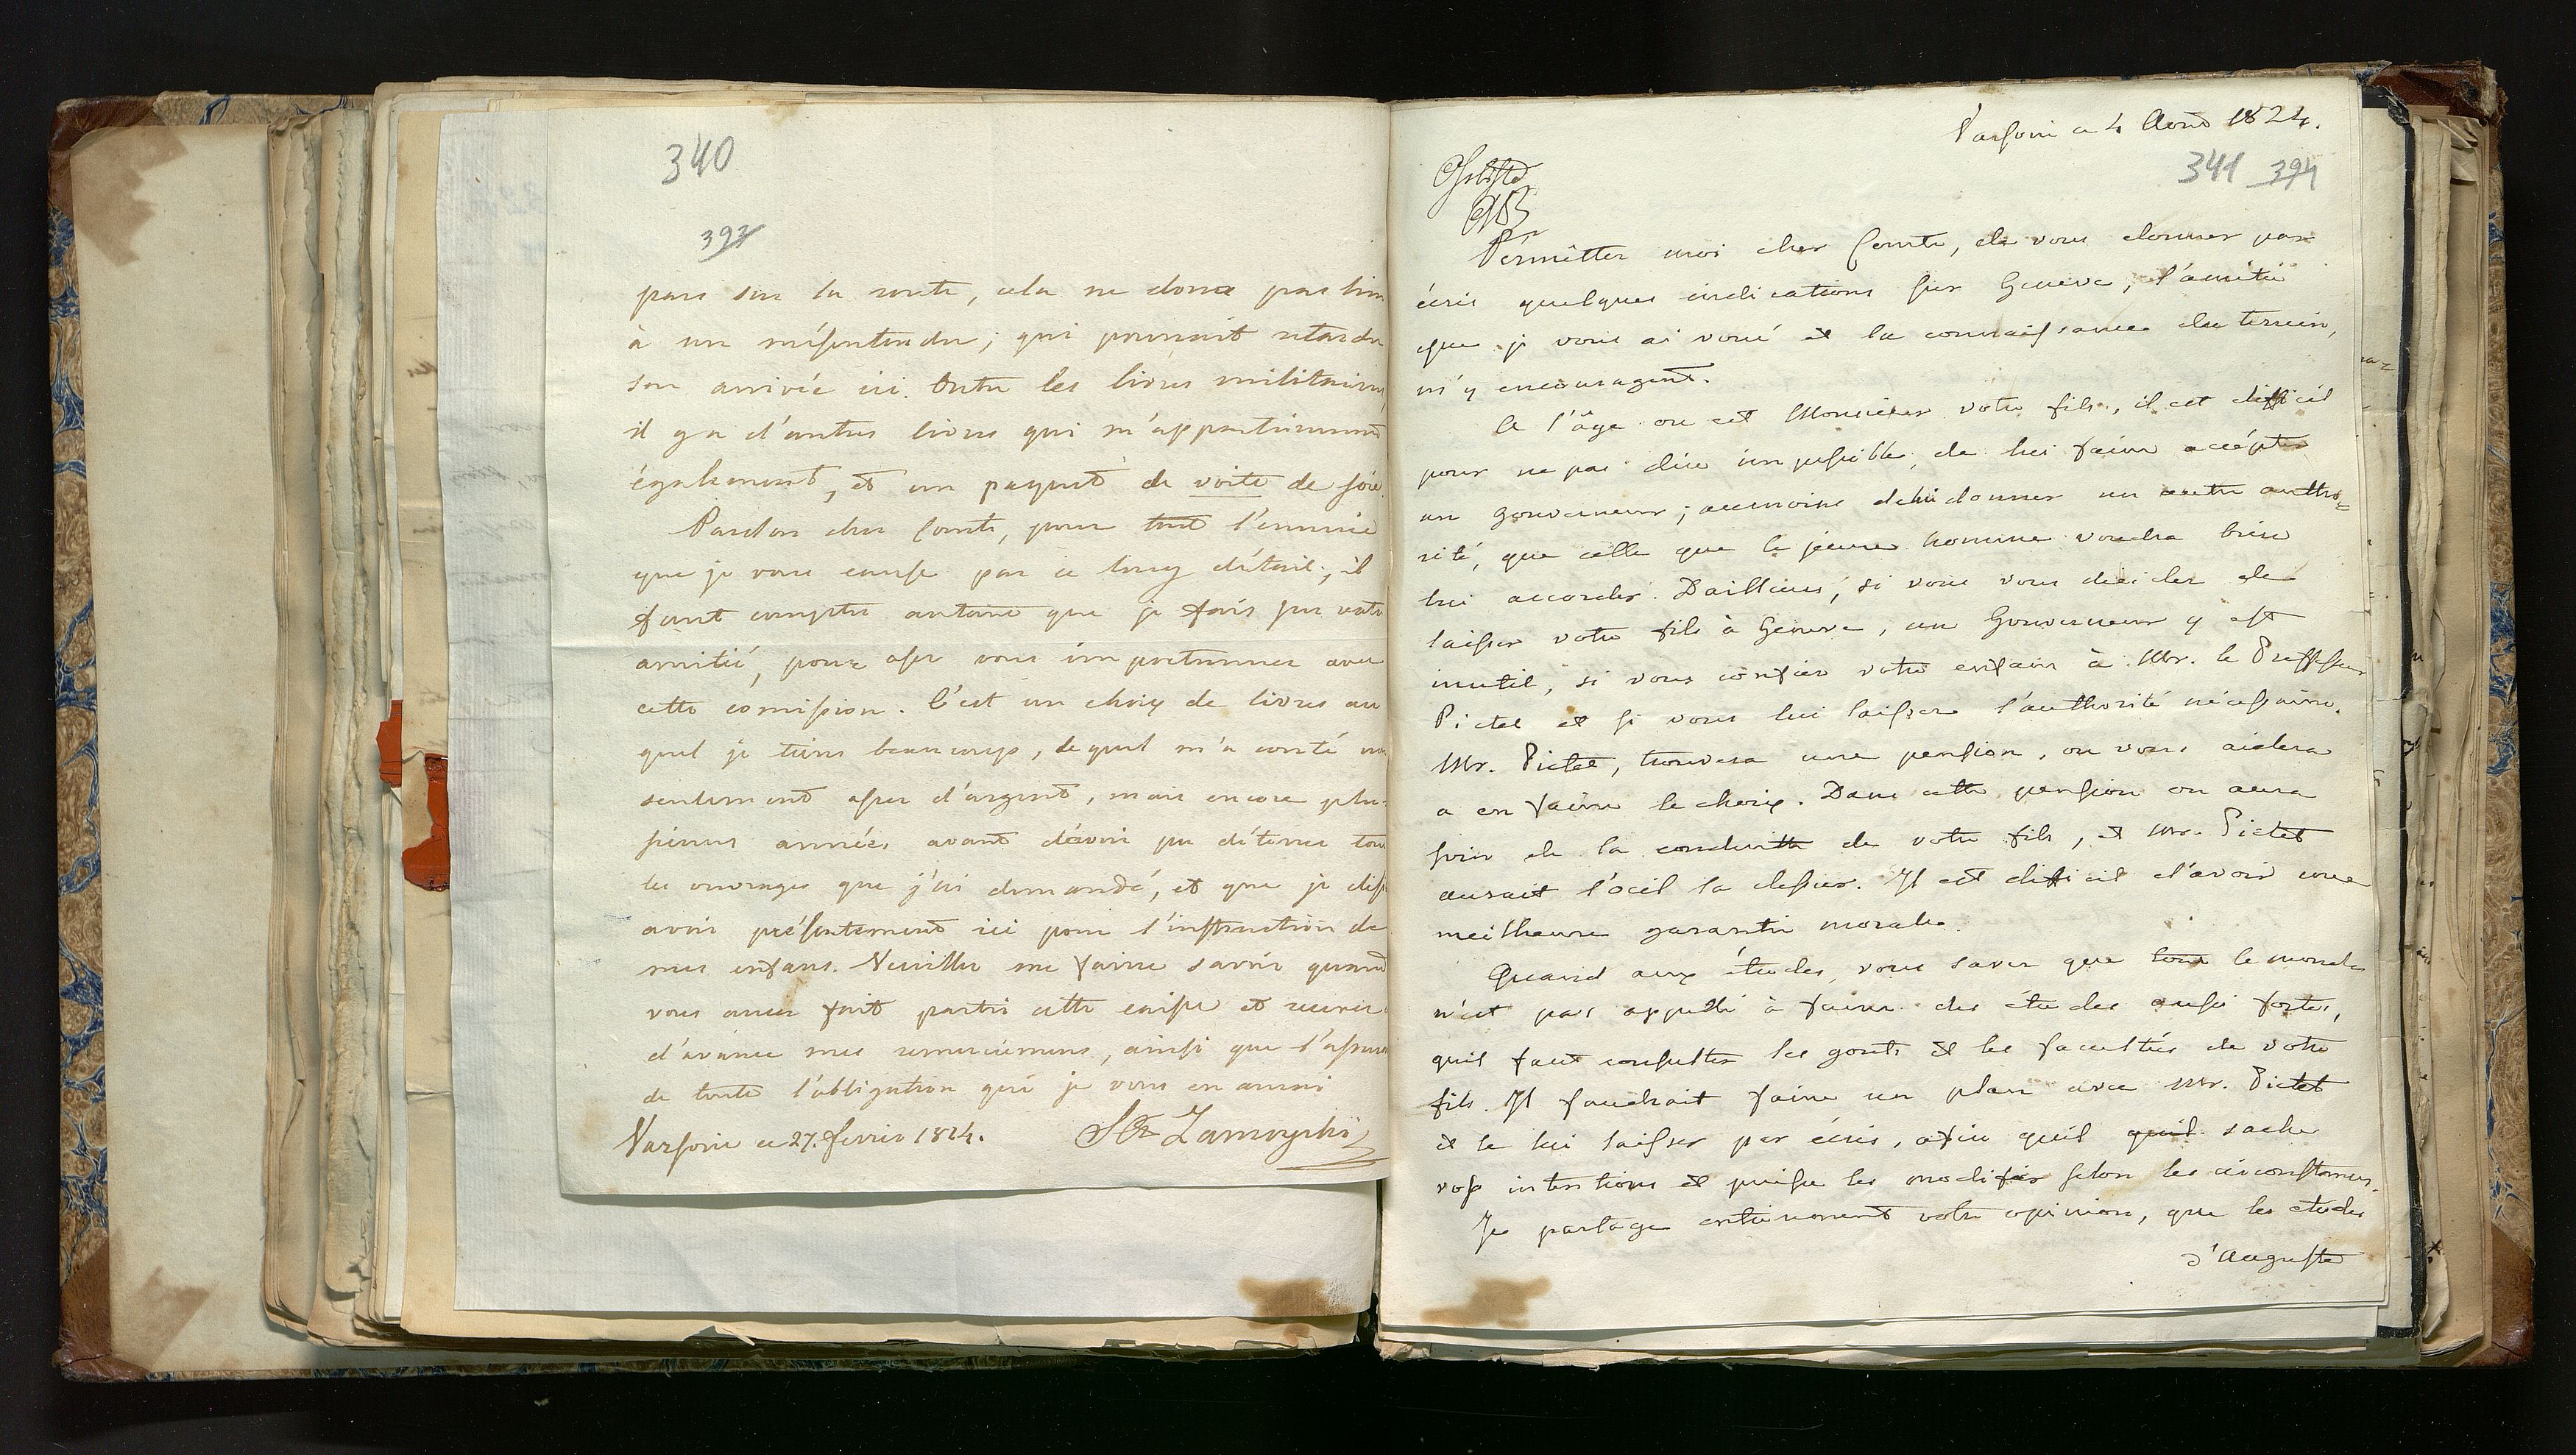 340
393
pare sur la route, cela ne dona pas lieu
à un mésentendu; qui pourrait retarder
son arrivée ici. Outre les livres militaires,
il y a d'autres livres qui m'appartiennent
également, et un paquet de voite de soie.
Pardon cher Comte, pour tout l'ennuie
que je vous cause par ce long détail; il
faut compter autant que je fais sur votre
amitié, pour oser vous importunner avec
cette comission. C'est un choix de livres au
quel je tiens beaucoup, le quel m'a couté non
seulement assez d'argent, mais encore plu-
sieurs années avant d'avoir pu détenir tous
les ouvrages que j'ai demandé, et que je
avoir présentement ici pour l'instruction de
mes enfans. Veuillez me faire savoir quand
vous aurez fait partir cette caisse et recevez
d'avance mes remerciemens, ainsi que l'assurance
de toute l'obligation que je vous en aurai
Varsovie ce 27. fevrier 1824. Zamoyski
Varsovie ce 4 Août 1824.
341 394
Pérmetter moi cher Comte, de vous donner par
écris quelques indications sur Geneve; l'amitié
que je vous ai voué et la connaissance du terrein,
m'y encouragent.
A l'âge ou est Monsieur votre fils, il est difficil
pour ne pas dire impossible, de lui faire accépter
un gouverneur; aumoins de lui donner un autre autho=
rité, que celle que le jeune homme voudra bien
lui accorder. Dailleurs, si vous vous decider de
laisser votre fils à Geneve, un Gouverneur y est
inutil, si vous confier votre enfant à Mr. le Proffesseur
Pictet et si vous lui laisser l'authorité nécessaire.
Mr. Pictet, trouvera une pension, ou vous aidera
a en faire le choix. Dans cette pension on aura
soin de la conduitte de votre fils, et Mr. Pictet
aurait l'oeil la dessus. Il est difficil d'avoir une
meilheure garantie morale.
Quand aux études, vous saver que tout le monde
n'est pas appellé à faire des études aussi fortes,
quil faut consulter les gouts et les facultés de votre
fils. Il faudrait faire un plan avec Mr. Pictet
et le lui laisser par écris, afin quil quil sache
vos intentions et puisse les modifier selon les circonstances.
Je partage entierement votre opinion, que les etudes
d'Auguste